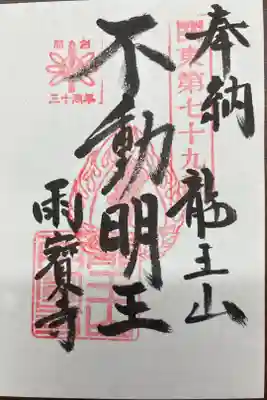 奉納
龍王山
東第七十九
不動明王
三十周年
雨寶寺